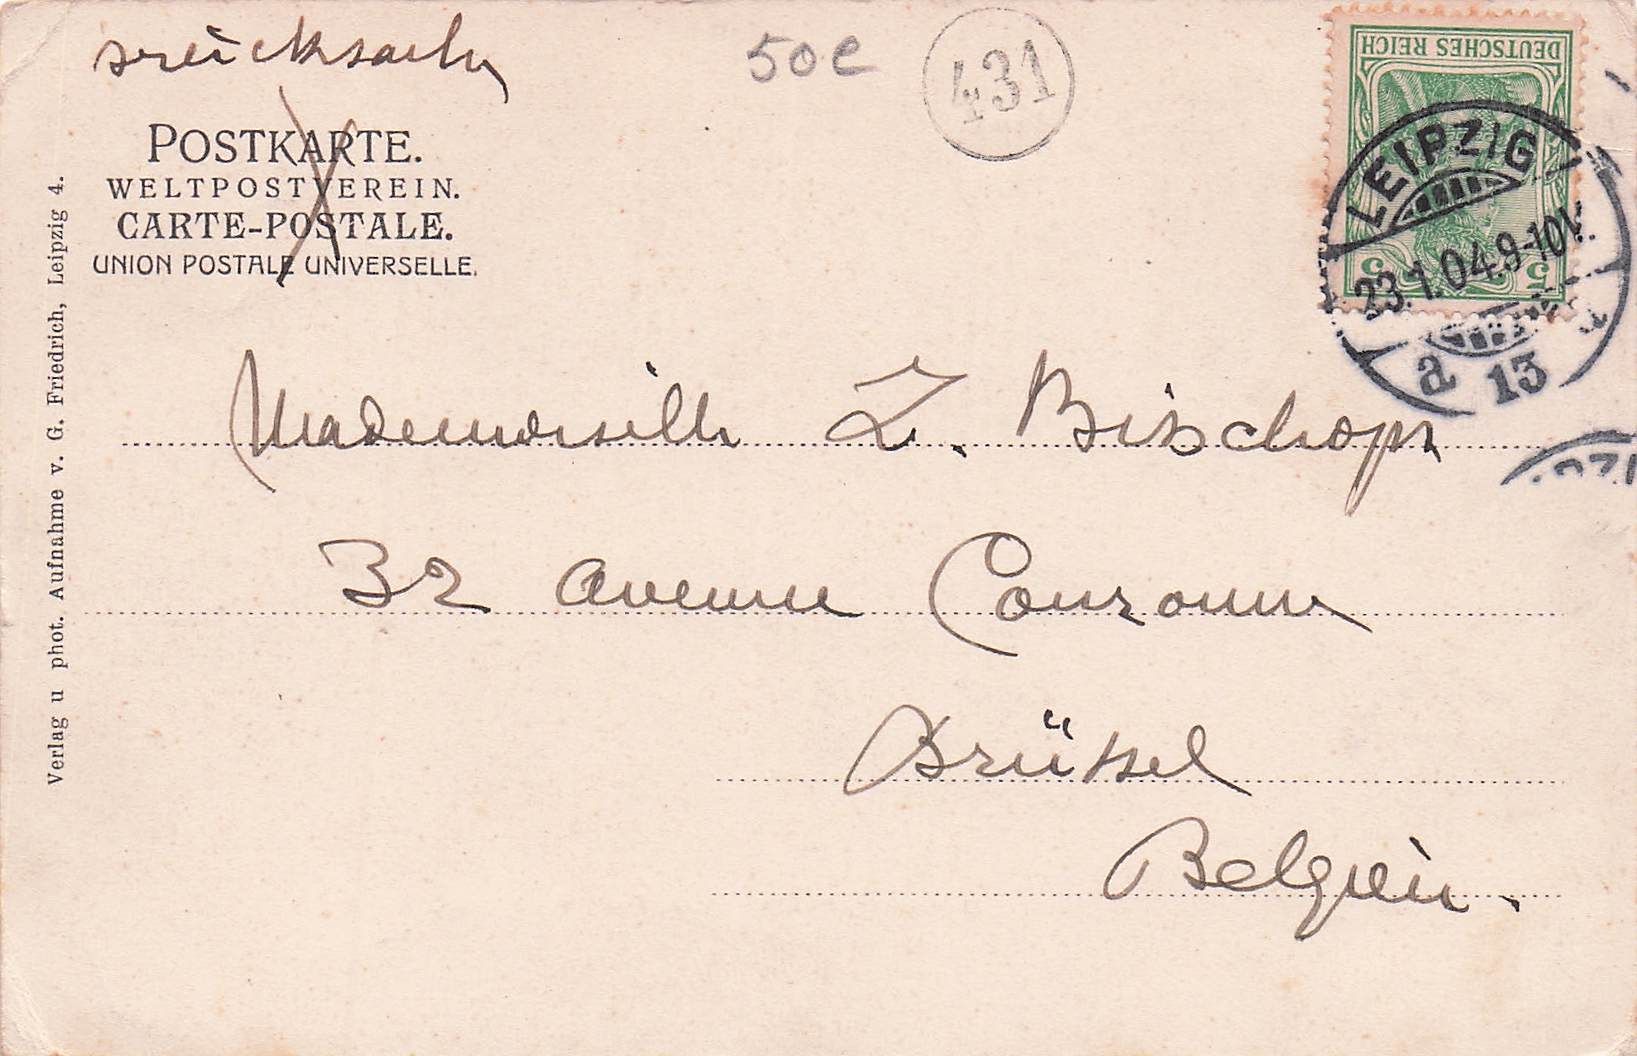 Drucksache
50c
431
DEUTSCHES REICH
5 5
LEIPZIG
23.1.04.9-10V.
a 13
POSTKARTE.
WELTPOSTVEREIN.
CARTE-POSTALE.
UNION POSTALE UNIVERSELLE.
Verlag u phot. Aufnahme v. G. Friedrich, Leipzig 4.
Mademoiselle Z. Bischops
32 avenue Couronne
Brüssel
Belgien.